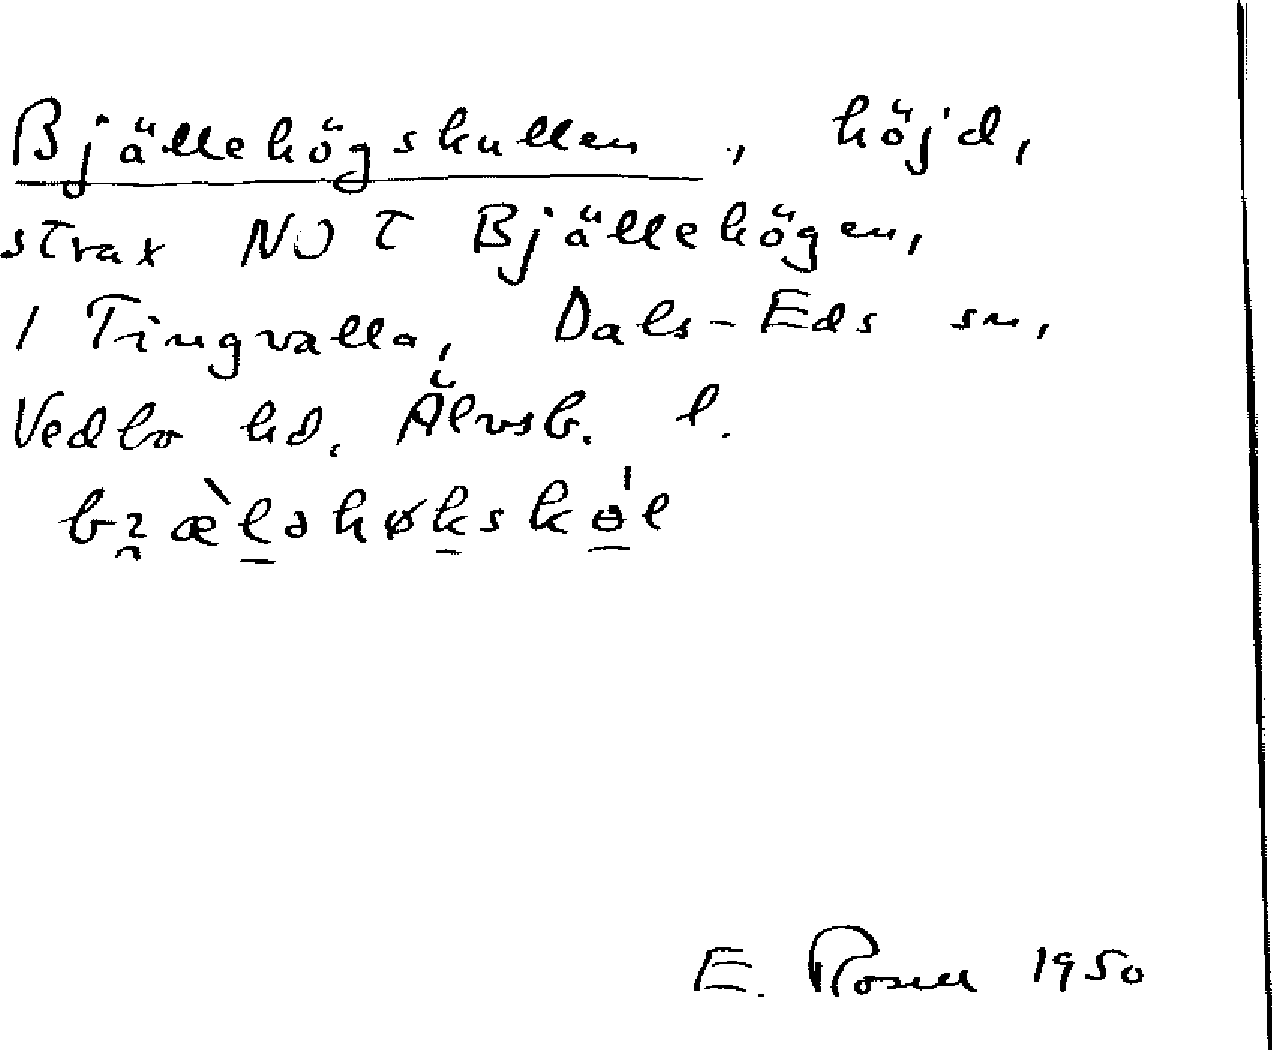 Bjällehögskullen, höjd,
strax NO T Bjällehögen,
1 Tingvalla, Dals-Eds sn,
Vedbo hd, Älvsb. l.
E. Rosell 1950